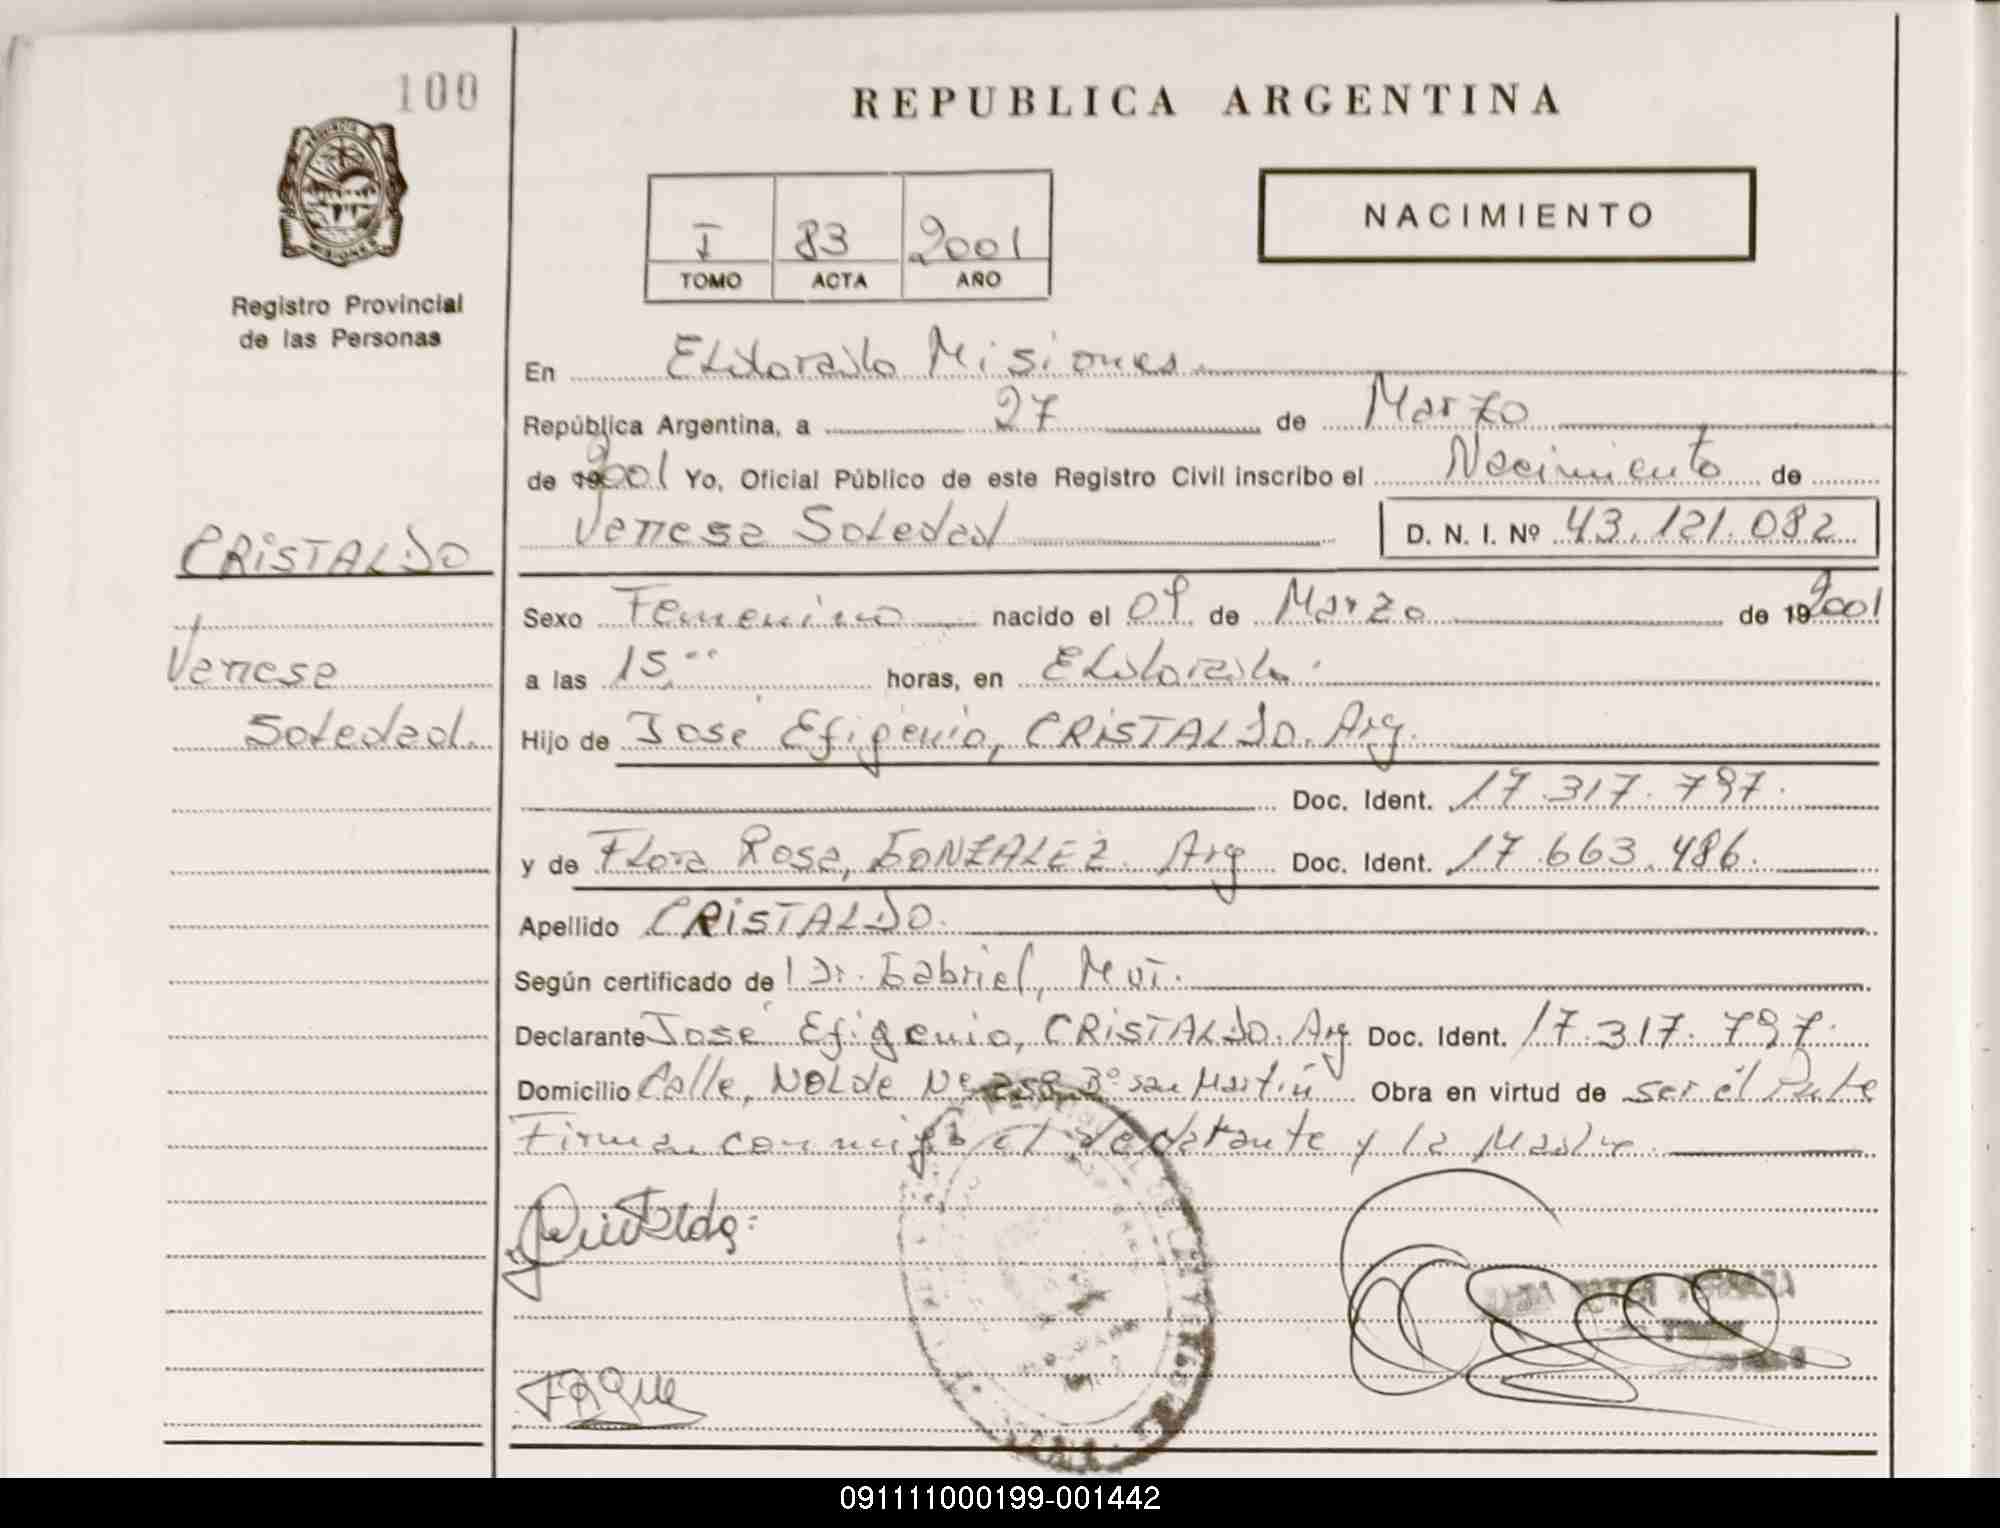 100
REPUBLICA ARGENTINA
NACIMIENTO
I 83 2001
TOMO ACTA AÑO
Registro Provincial
de las Personas
En Eldorado Misiones
República Argentina, a 27 de Marzo
de 2001 Yo, Oficial Público de este Registro Civil inscribo el Nacimiento de
Venesa Soledad D. N. I. Nº 43.121.082
CRISTALDO
Venesa
Soledad
Sexo Femenino nacido el 09 de Marzo de 19 2001
a las 15 horas, en Eldorado.
Hijo de José Efigenio, CRISTALDO. Arg.
Doc. Ident. 17.317.797.
y de Flora Rosa, GONZALEZ. Arg Doc. Ident. 17.663.486.
Apellido CRISTALDO.
Según certificado de Dr. Gabriel,
Declarante José Efigenio, CRISTALDO. Arg Doc. Ident. 17.317.797.
Domicilio Calle, NOLDE Nº 258 Bº San Martin Obra en virtud de ser él Padre
Firman conmigo el declarante y la Madre.
091111000199-001442